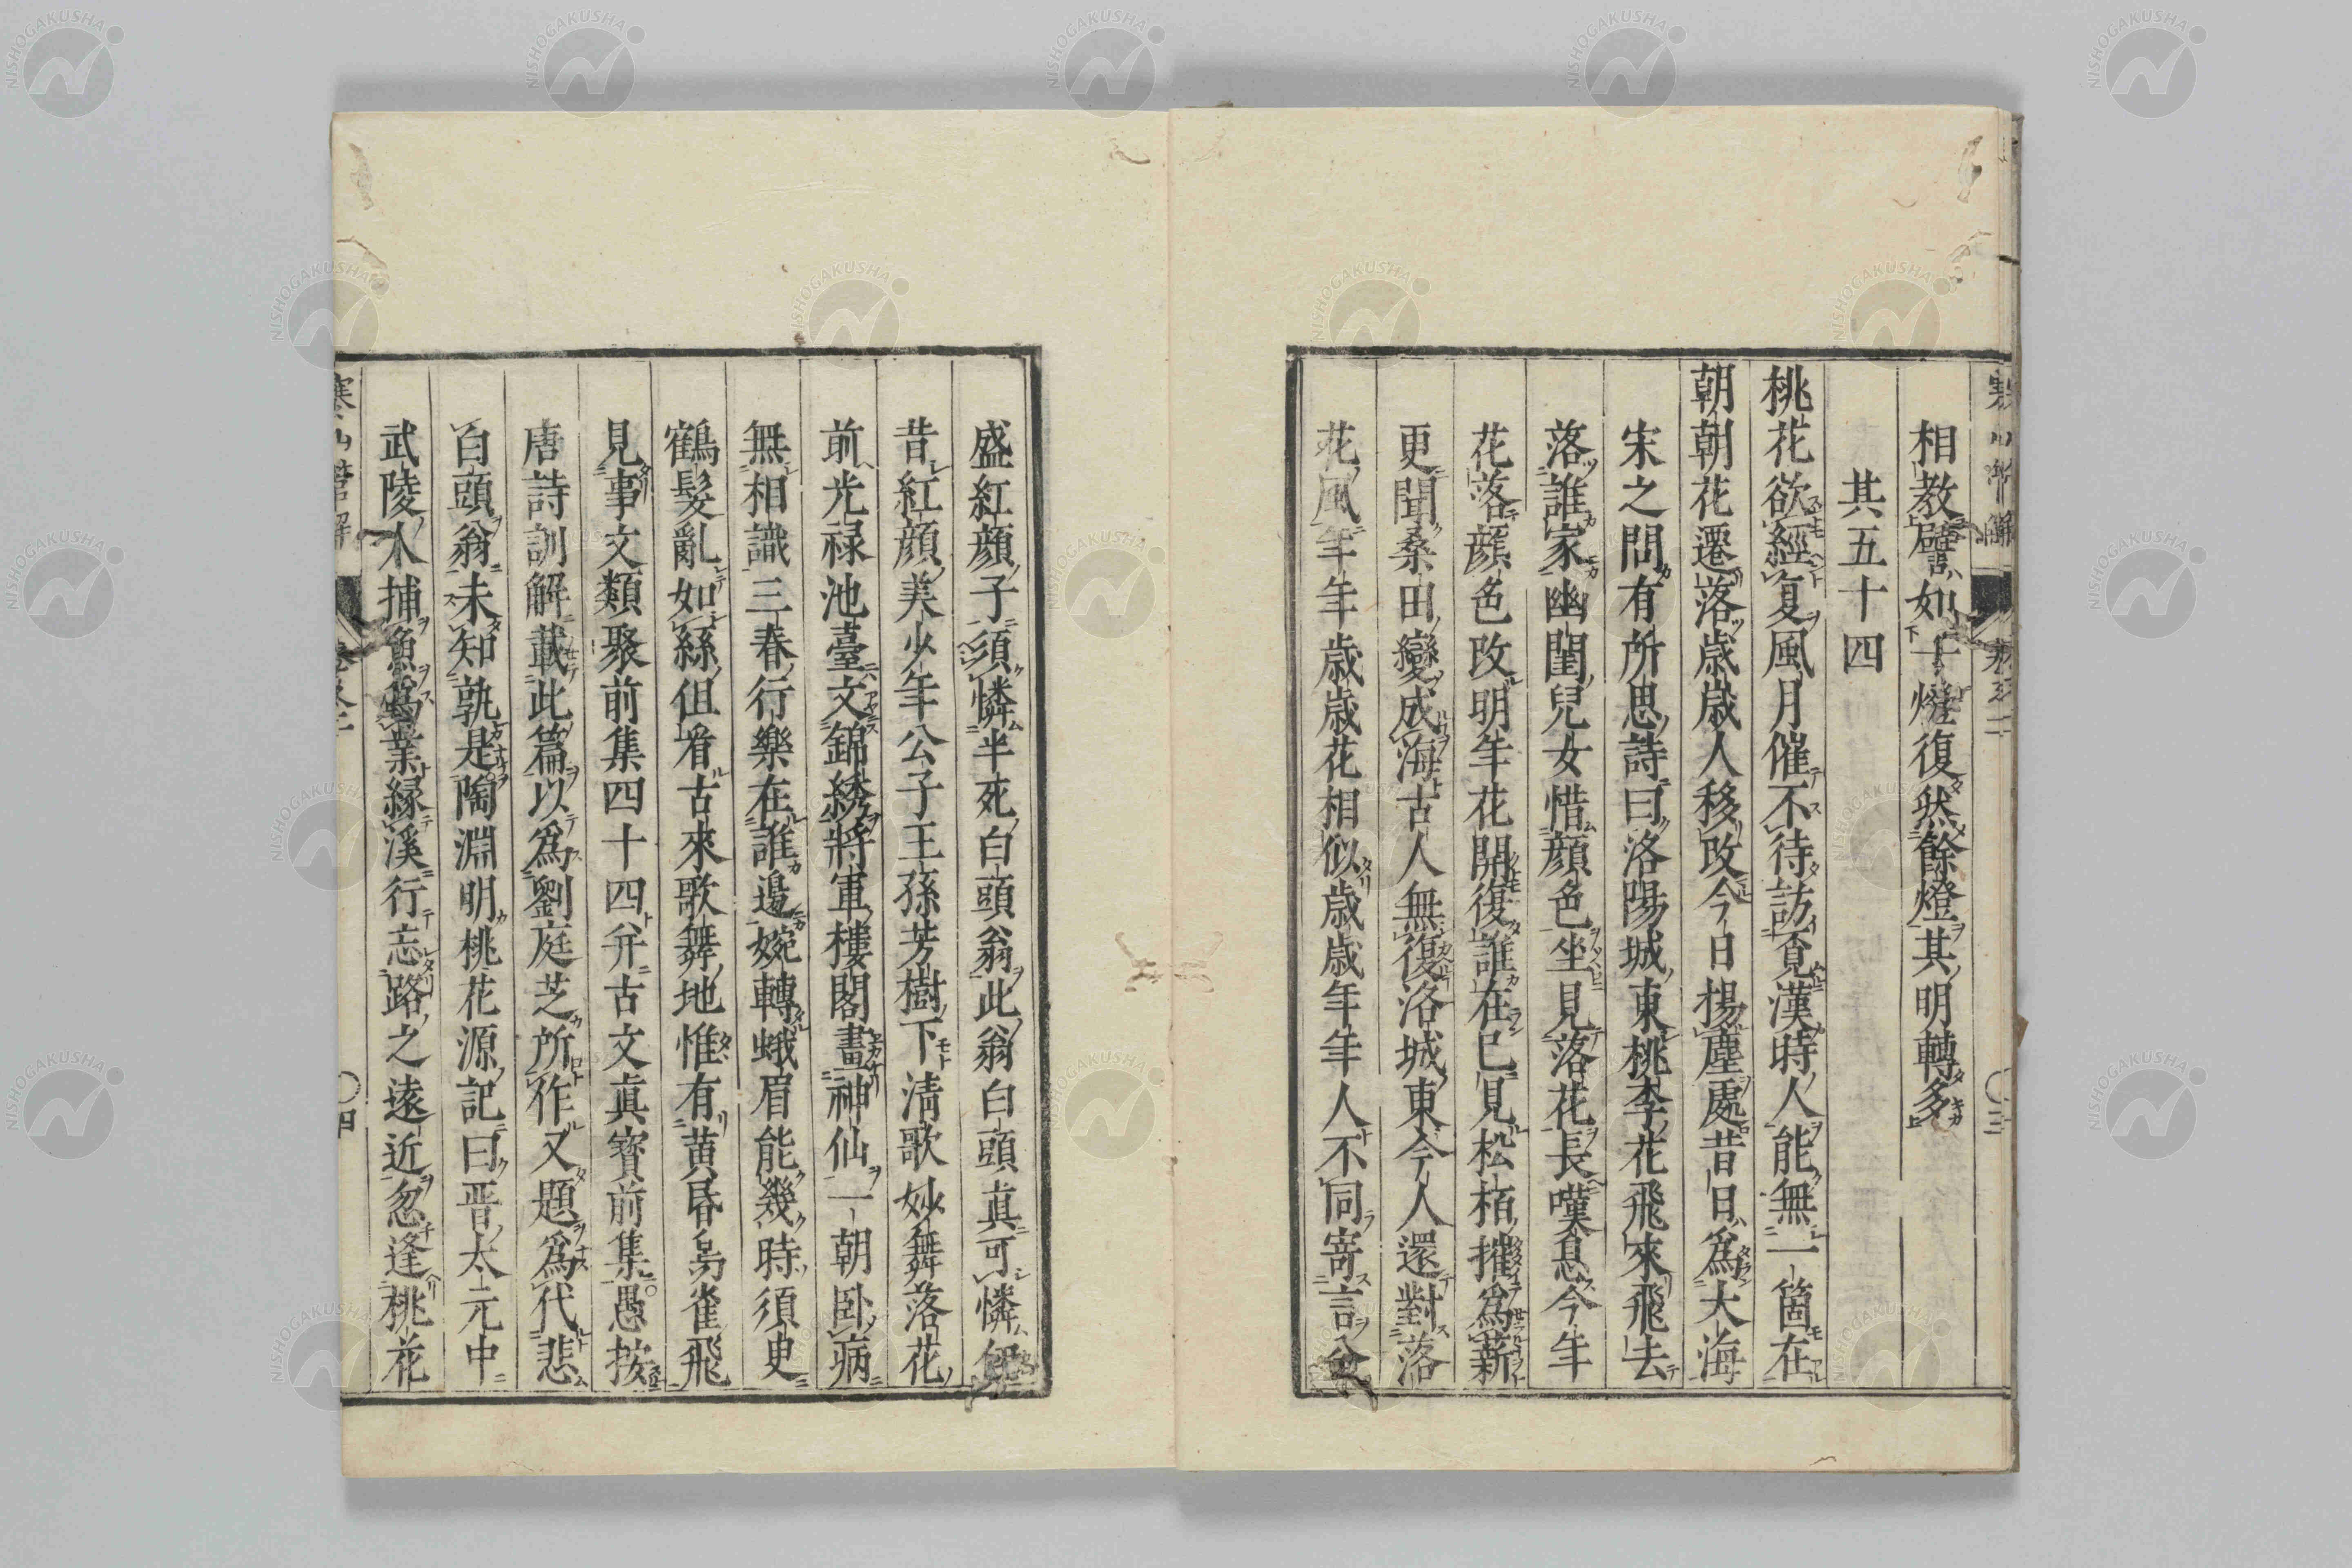 相教譬如一燈復然餘燈其明轉多
其五十四
桃花欲經夏風月催不待訪覓漢時人能無一箇在
朝朝花遷落歳歳人移改今日揚塵處昔日爲大海
宋之問有所思詩曰洛陽城東桃李花飛來飛去
落誰家幽閨兒女惜顔色坐見落花長嘆息今年
花落顔色改明年花開復誰在已見松栢摧爲薪
更聞桑田變成海古人無復洛城東今人還對落
花風年年歳歳花相似歳歳年年人不同寄言全
盛紅顔子須憐半死白頭翁此翁白頭真可憐伊
昔紅顔美少年公子王孫芳樹下清歌妙舞落花
前光禄池臺文錦綉將軍樓閣畫神仙一朝臥病
無相識三春行樂在誰邊婉轉蛾眉能幾時須臾
鶴髮亂如絲但看古來歌舞地惟有黄昏鳥雀飛
見事文類聚前集四十四并古文眞寳前集愚按
唐詩訓解載此篇以爲劉庭芝所作又題爲代悲
白頭翁未知孰是陶淵明桃花源記曰晋太元中
武陵人捕魚爲業縁溪行忘路之遠近忽逢桃花
NISHOGAKUSHA